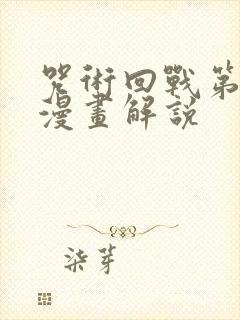 咒術回戰第
漫畫解說
柒芽